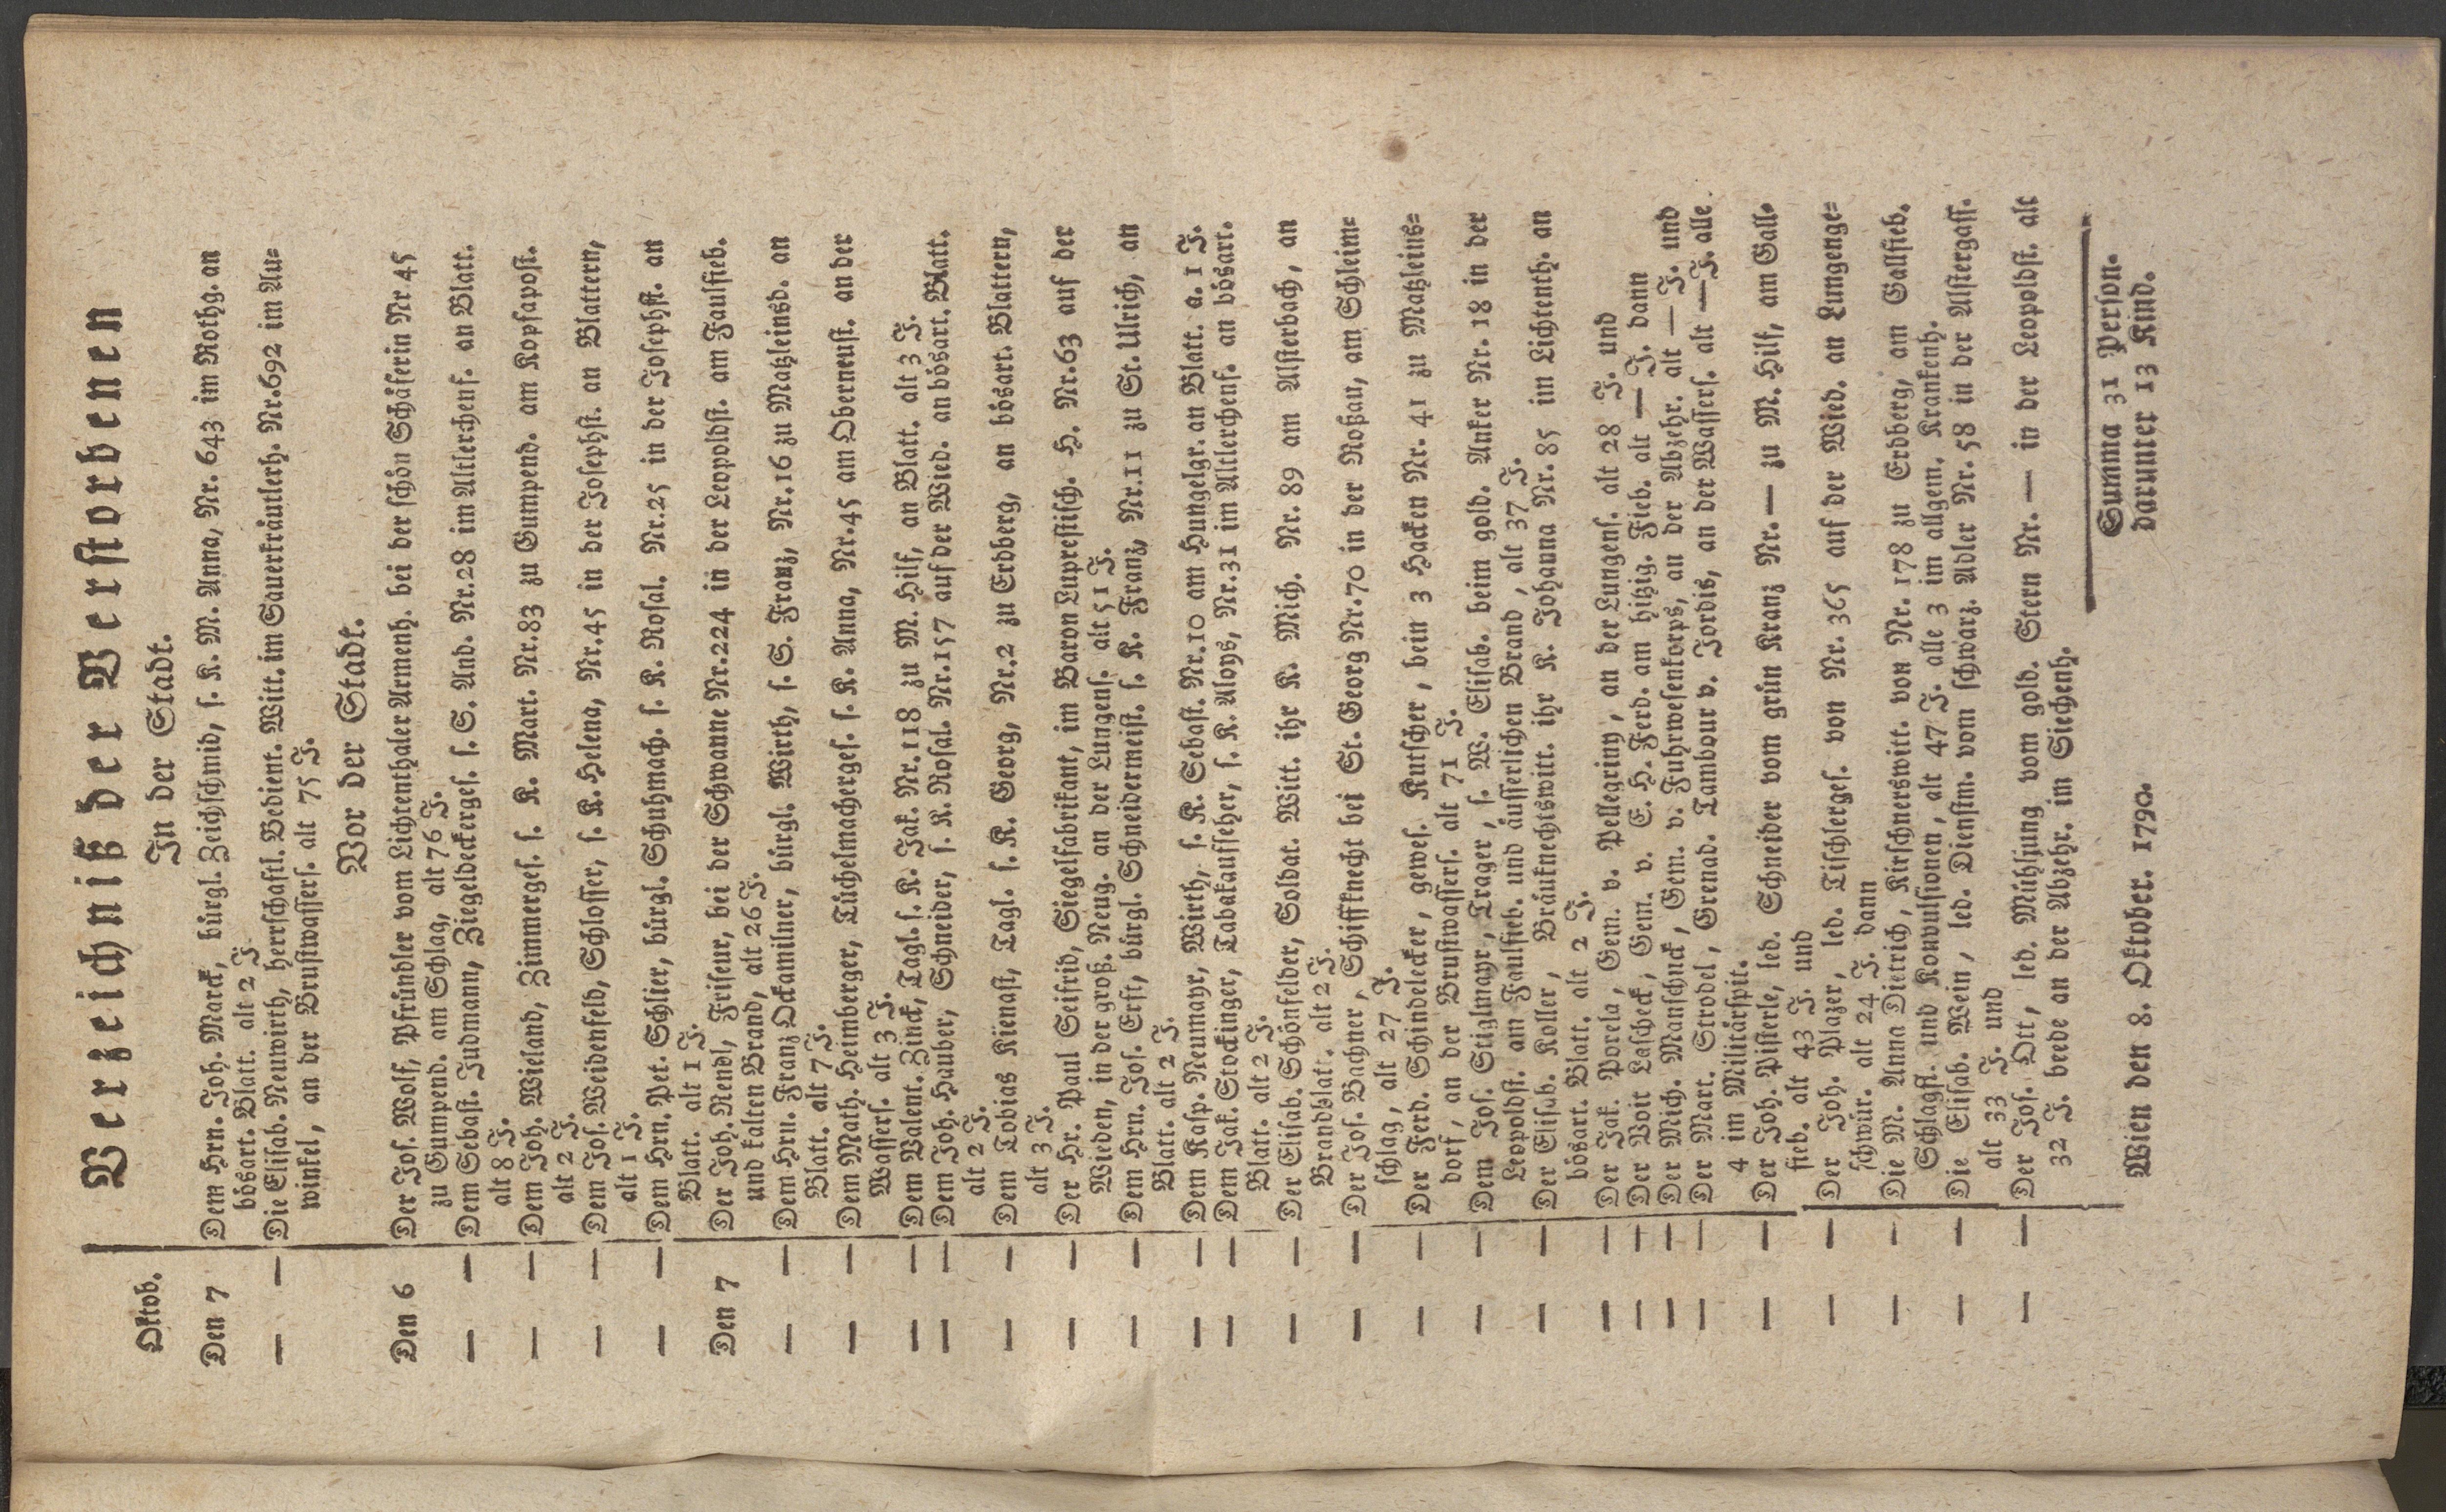 Verzeichniß der Verstorbenen
Oktob. In der Stadt.
Den 7 Dem Hrn. Joh. Marck, bürgl. Zeichschmid, s. K. M. Anna, Nr. 643 im Rothg. an
bösart. Blatt. alt 2 J.
— — Die Elisab. Neuwirth, herrschaftl. Bedient. Witt. im Sauerkräutlerh. Nr. 692 im Au=
winkel, an der Brustwassers. alt 75 J.
Vor der Stadt.
Den 6 Der Jos. Wolf, Pfründler vom Lichtenthaler Armenh. bei der schön Schäferin Nr. 45
zu Gumpend. am Schlag, alt 76 J.
— — Dem Sebast. Judmann, Ziegeldeckerges. s. S. And. Nr. 28 im Altlerchenf. an Blatt.
alt 8 J.
— — Dem Joh. Wieland, Zimmerges. s. K. Mart. Nr. 83 zu Gumpend. am Kopfapost.
alt 2 J.
— — Dem Jos. Weidenfeld, Schlosser, s. K. Helena, Nr. 45 in der Josephst. an Blattern,
alt 1 J.
— — Dem Hrn. Pet. Schlier, bürgl. Schuhmach. s. K. Rosal. Nr. 25 in der Josephst. an
Blatt. alt 1 J.
Den 7 Der Joh. Rendl, Friseur, bei der Schwanne Nr. 224 in der Leopoldst. am Faulfieb.
und kalten Brand, alt 26 J.
— — Dem Hrn. Franz Ockamilner, bürgl. Wirth, s. S. Franz, Nr. 16 zu Matzleinsd. an
Blatt. alt 7 J.
— — Dem Math. Heimberger, Tüchelmacherges. s. K. Anna, Nr. 45 am Oberneust. an der
Wassers. alt 3 J.
— — Dem Valent. Zinck, Tagl. s. K. Jak. Nr. 118 zu M. Hilf, an Blatt. alt 3 J.
— — Dem Joh. Hauber, Schneider, s. K. Rosal. Nr. 157 auf der Wied. an bösart. Blatt.
alt 2 J.
— — Dem Tobias Kienast, Tagl. s. K. Georg, Nr. 2 zu Erdberg, an bösart. Blattern,
alt 3 J.
— — Der Hr. Paul Seifrid, Siegelfabrikant, im Baron Luprestisch. H. Nr. 63 auf der
Wieden, in der groß. Neug. an der Lungens. alt 51 J.
— — Dem Hrn. Jos. Erst, bürgl. Schneidermeist. s. K. Franz, Nr. 11 zu St. Ulrich, an
Blatt. alt 2 J.
— — Dem Kasp. Neumayr, Wirth, s. K. Sebast. Nr. 10 am Hungelgr. an Blatt. a. 1 J.
— — Dem Jak. Stockinger, Tabakaufseher, s. K. Aloys, Nr. 31 im Altlerchenf. an bösart.
Blatt. alt 2 J.
— — Der Elisab. Schönfelder, Soldat. Witt. ihr K. Mich. Nr. 89 am Alsterbach, an
Brandblatt. alt 2 J.
— — Der Jos. Bachner, Schiffknecht bei St. Georg Nr. 70 in der Roßau, am Schleim=
schlag, alt 27 J.
— — Der Ferd. Schindelecker, gewes. Kutscher, bein 3 Hacken Nr. 41 zu Matzleins=
dorf, an der Brustwassers. alt 71 J.
— — Dem Jos. Stiglmayr, Trager, s. W. Elisab. beim gold. Anker Nr. 18 in der
Leopoldst. am Faulfieb. und äusserlichen Brand, alt 37 J.
— — Der Elisab. Koller, Bräuknechtswitt. ihr K. Johanna Nr. 85 im Lichtenth. an
bösart. Blatt. alt 2 J.
— — Der Jak. Porela, Gem. v. Pellegriny, an der Lungens. alt 28 J. und
— — Der Voit Lascheck, Gem. v. E. H. Ferd. am hitzig. Fieb. alt — J. dann
— — Der Mich. Manschuck, Gem. v. Fuhrwesenkorps, an der Abzehr. alt — J. und
— — Der Mart. Strodel, Grenad. Tambour v. Jordis, an der Wassers. alt — J. alle
4 im Militärspit.
— — Der Joh. Pisterle, led. Schneider vom grün Kranz Nr. — zu M. Hilf, am Gall=
fieb. alt 43 J. und
— — Der Joh. Plazer, led. Tischlerges. von Nr. 365 auf der Wied. an Lungenge=
schwür. alt 24 J. dann
— — Die M. Anna Dietrich, Kirschnerswitt. von Nr. 178 zu Erdberg, am Gallfieb.
Schlagfl. und Konvulsionen, alt 47 J. alle 3 im allgem. Krankenh.
— — Die Elisab. Wein, led. Dienstm. vom schwarz. Adler Nr. 58 in der Alstergass.
alt 33 J. und
— — Der Jos. Ott, led. Mühljung vom gold. Stern Nr. — in der Leopoldst. alt
32 J. beede an der Abzehr. im Siechenh.
Summa 31 Person.
darunter 13 Kind.
Wien den 8. Oktober. 1790.